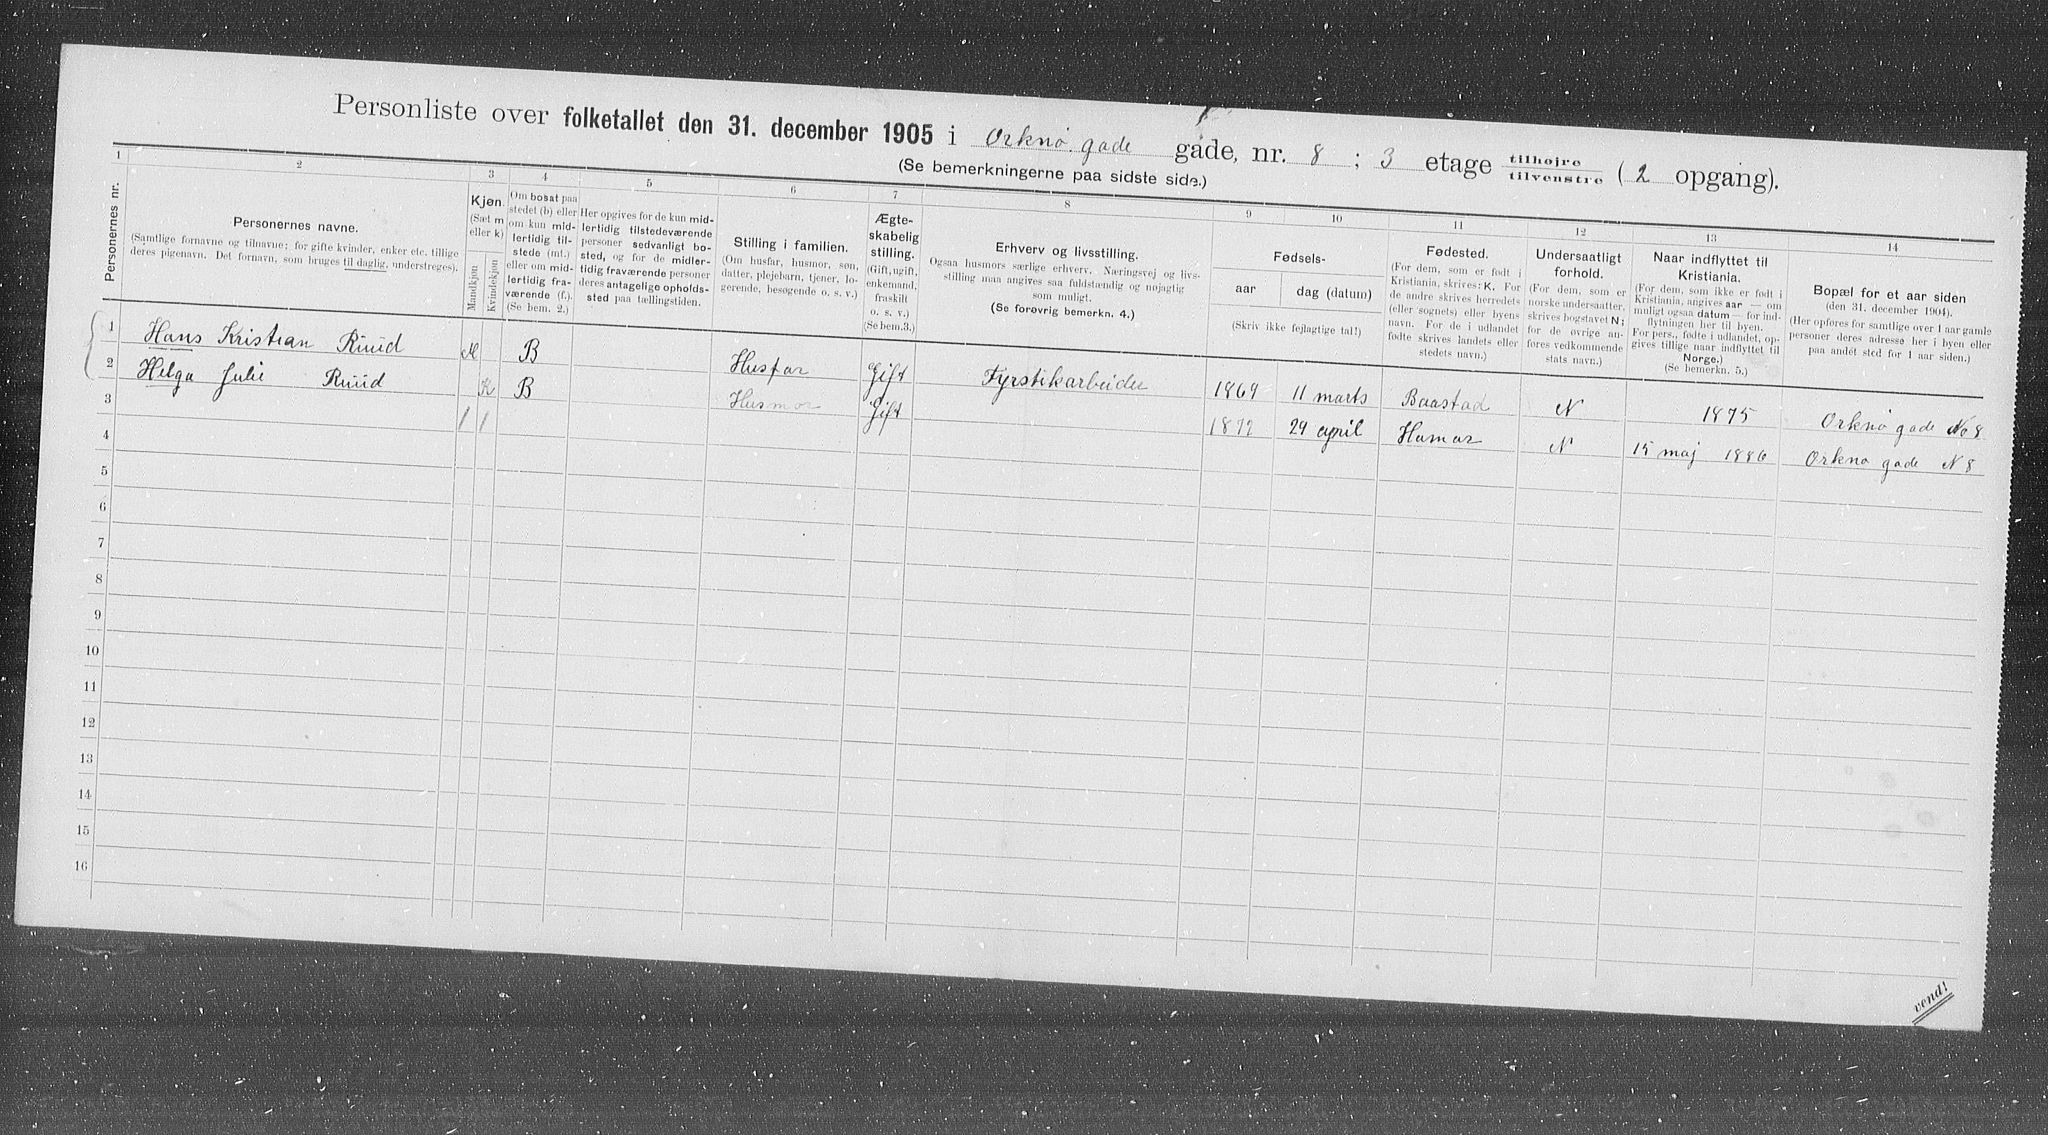 Personliste over folketallet den 31. december 1905 i Orknø gade gade, nr. 8 ; 3 etage tilhøjre tilvenstre ( 2 opgang).
(Se bemerkningerne paa sidste side.)
1 2 3 4 5 6 7 8 9 10 11 12 13 14
Personernes nr.
Personernes navne.
(Samtlige fornavne og tilnavne; for gifte kvinder, enker etc. tillige
deres pigenavn. Det fornavn, som bruges til daglig, understreges).
Kjøn.
(Sæt m
eller k)
Mandkjøn
Kvindekjøn
Om bosat paa
stedet (b) eller
om kun mid-
lertidig til-
stede (mt.)
eller om mid-
lertidig fra-
værende (f.).
(Se bem. 2.)
Her opgives for de kun mid-
lertidig tilstedeværende
personer sedvanligt bo-
sted, og for de midler-
tidig fraværende personer
deres antagelige opholds-
sted paa tællingstiden.
Stilling i familien.
(Om husfar, husmor, søn,
datter, plejebarn, tjener, lo-
gerende, besøgende o. s. v.)
Ægte-
skabelig
stilling.
(Gift, ugift,
enkemand,
fraskilt
o. s. v.)
(Se bem.3.)
Erhverv og livsstilling.
Ogsaa husmors særlige erhverv. Næringsvej og livs-
stilling maa angives saa fuldstændig og nøjagtig
som muligt.
(Se forøvrig bemerkn. 4.)
Fødsels-
aar
dag (datum)
(Skriv ikke fejlagtige tal!)
Fødested.
(For dem, som er født i
Kristiania, skrives: K. For
de andre skrives herredets
(eller sognets) eller byens
navn. For de i udlandet
fødte skrives landets eller
stedets navn.)
Undersaatligt
forhold.
(For dem, som er
norske undersaatter,
skrives bogstavet N;
for de øvrige an-
føres vedkommende
stats navn.)
Naar indflyttet til
Kristiania.
(For dem, som ikke er født i
Kristiania, angives aar — om
muligt ogsaa datum — for ind-
flytningen her til byen.
For pers., fødte i udlandet, op-
gives tillige naar indflyttet til
Norge.)
(Se bemerkn. 5.)
Bopæl for et aar siden
(den 31. december 1904).
(Her opføres for samtlige over 1 aar gamle
personer deres adresse her i byen eller
paa andet sted for 1 aar siden.)
1 Hans Kristian Ruud M B Husfar Gift Fyrstikarbeider 1869 11 marts Baastad N 1875 Orknø gade No 8
2 Helga Julie Ruud K B Husmor Gift 29 april Hamar N 15 maj 1886 Orknø gade N 8
3 1 1
4
5
6
7
8
9
10
11
12
13
14
15
16
vend!